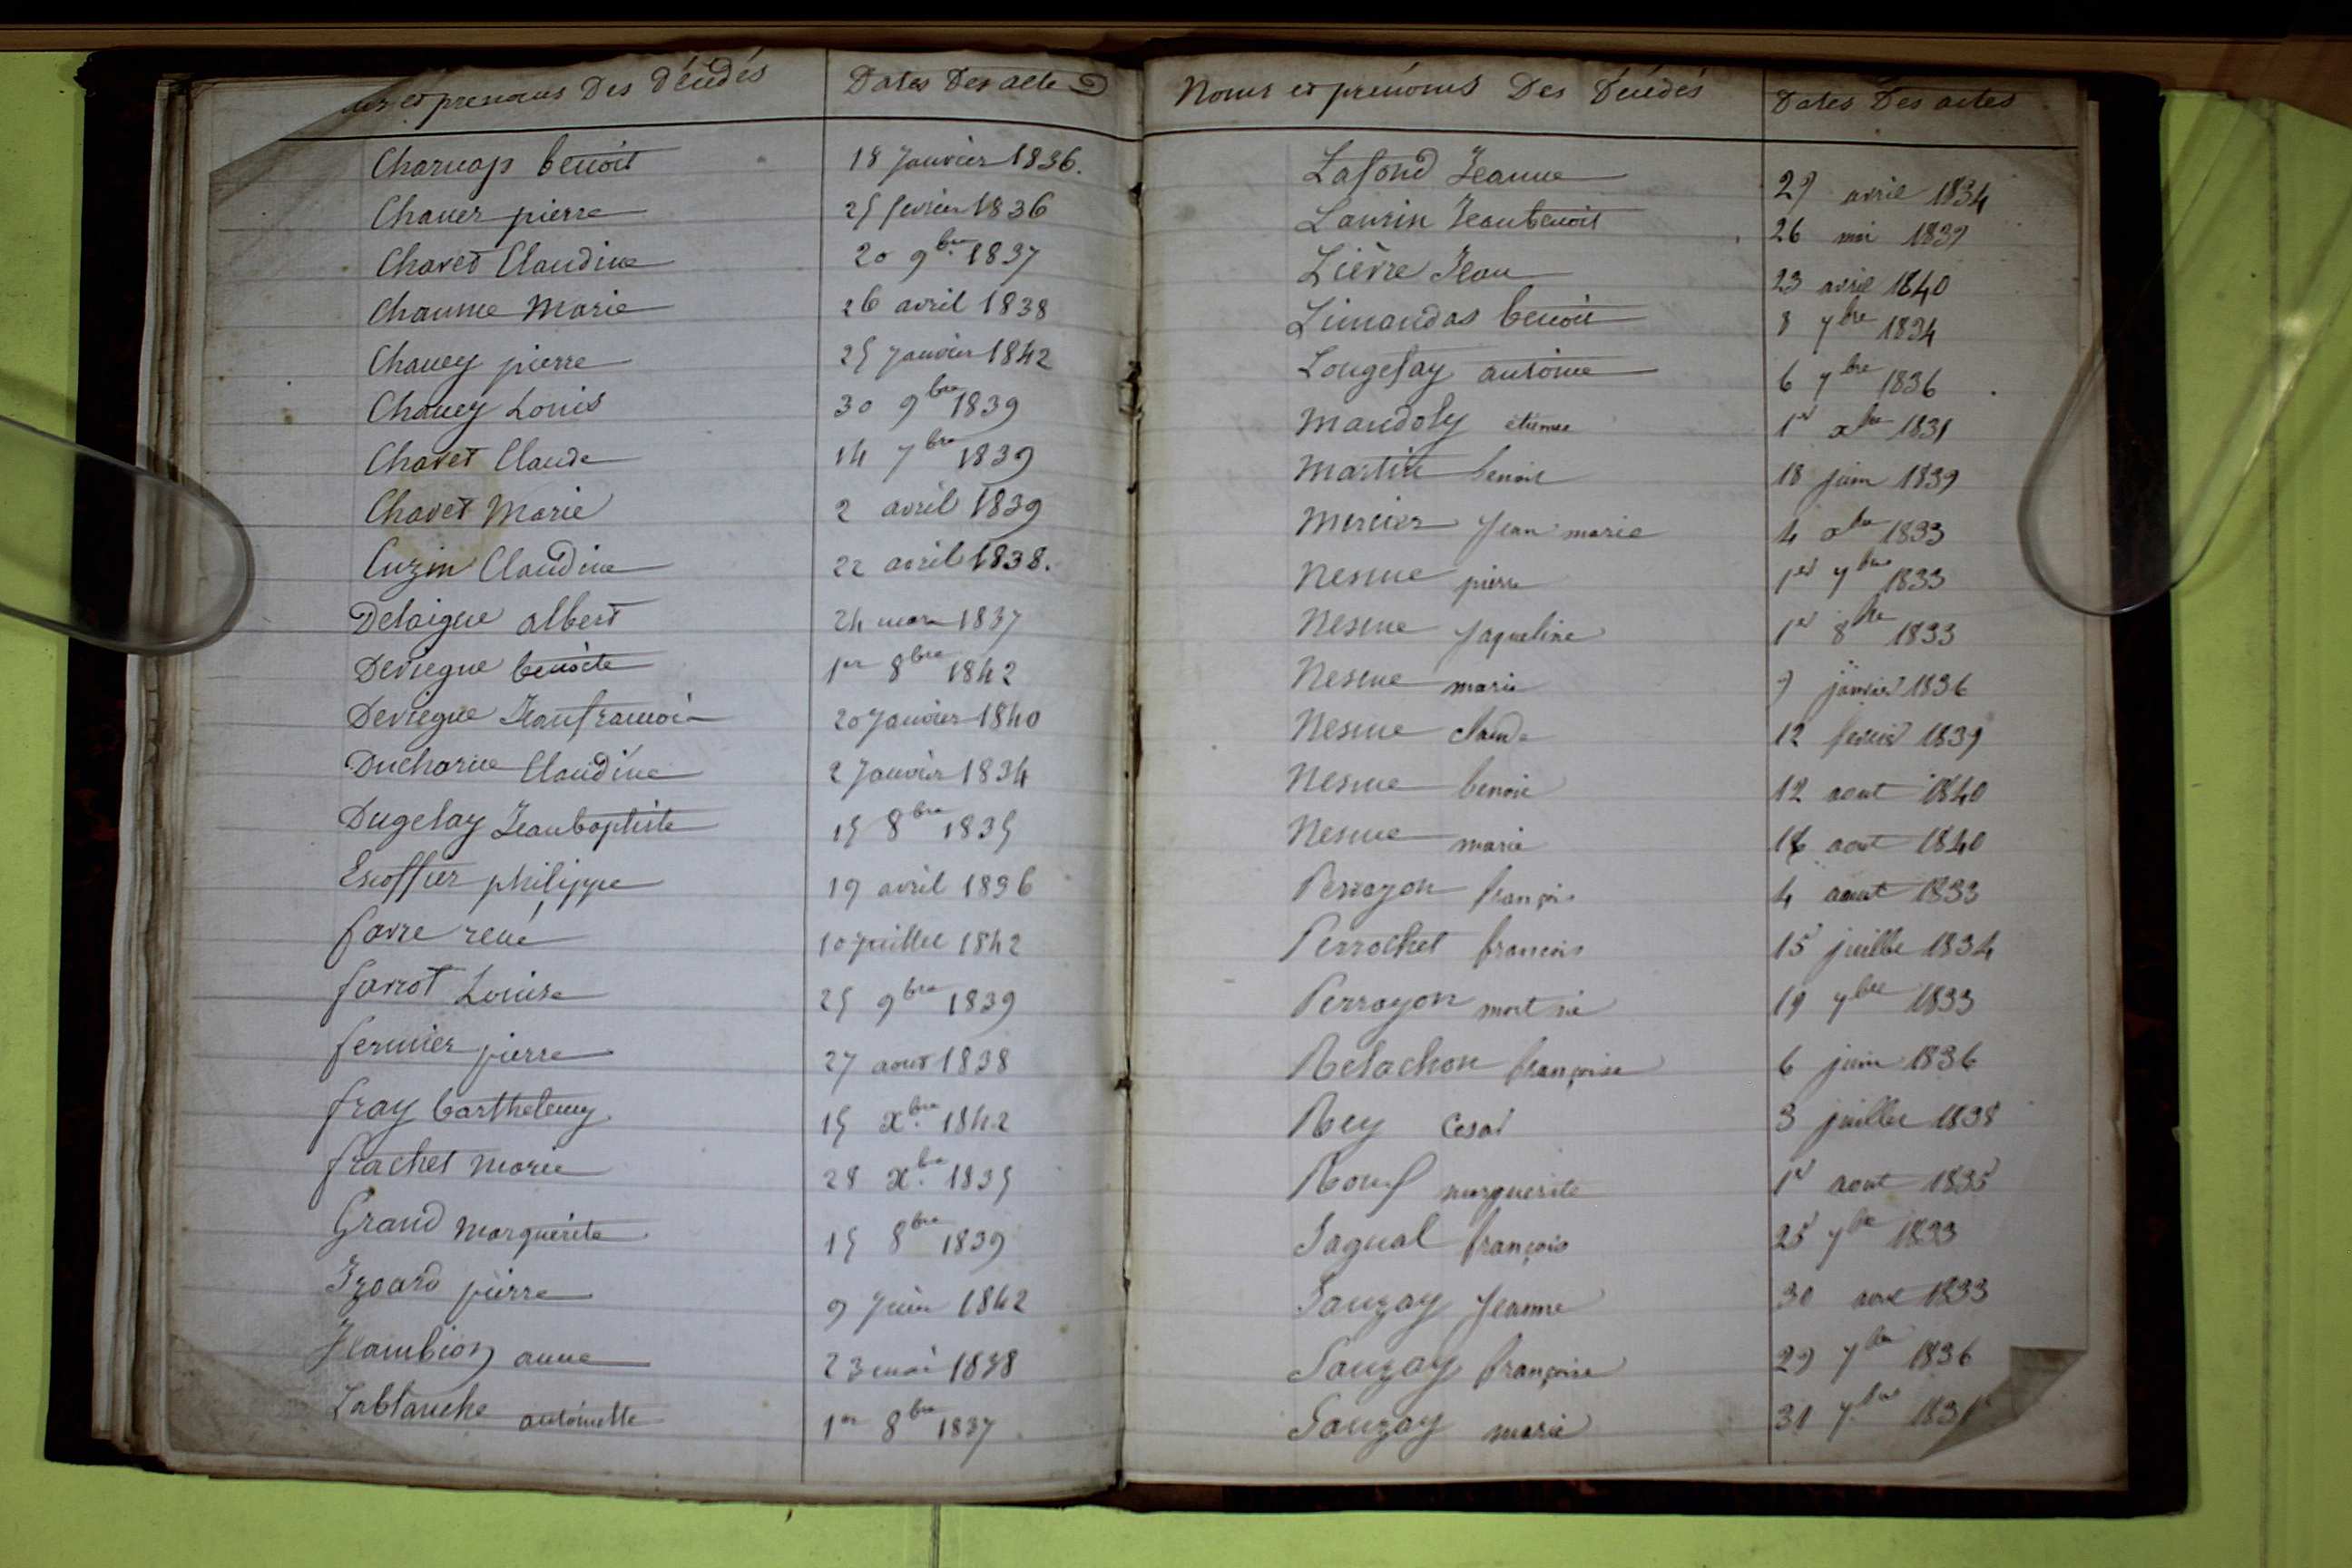 et prenoms Des Décédés
Dates Des actes
Charnap benoit
18 Janvier 1836.
Chaner pierre
25 fevrier 1836
Chavet Claudine
20 9bre 1837
Chaume Marie
26 avril 1838
Chavey pierre
25 Janvier 1842
Chavey Louis
30 9bre 1839
Chavet Claude
14 7bre 1839
Chavet Marie
2 avril 1839
Cuzin Claudine
22 avril 1838.
Delaigue albert
24 mars 1837
Deviegue benoite
1er 8bre 1842
Deviegue Jeanfrancois
20 Janvier 1840
Ducharne Claudine
2 Janvier 1834
Dugelay Jeanbaptiste
15 8bre 1835
Escoffier philippe
19 avril 1836
favre rené
10 Juillet 1842
favrot Louise
25 9bre 1839
fermier pierre
27 aout 1838
fray barthelemy
15 xbre 1842
frachet Marie
28 xbre 1835
Grand Marguerite
15 8bre 1839
Izoard pierre
9 Juin 1842
anne
23 mai 1838
Lablanche antoinette
1er 8bre 1837
Noms et prénoms Des Décédés
Dates Des actes
Lafond Jeanne
29 avril 1834
Laurin Jeanbenoit
26 mai 1839
Lièvre Jean
23 avril 1840
Limandas benoit
8 7bre 1834
Longefay antoine
6 7bre 1836
Mandoly étienne
1er xbre 1831
Martin benoit
18 juin 1839
Mercier Jean marie
4 xbre 1833
Nesme pierre
1er 7bre 1833
Nesme Jaqueline
1er 8bre 1833
Nesme marie
9 janvier 1836
Nesme claude
12 fevrier 1839
Nesme benoit
12 aout 1840
Nesme marie
16 aout 1840
Perrayon françois
4 aout 1833
Perrachet francois
15 juillet 1834
Perrayon mort né
19 7bre 1833
Relachon françoise
6 juin 1836
Rey Cesar
3 juillet 1838
marguerite
1er aout 1835
Sagnal françois
25 7bre 1833
Sauzay Jeanne
30 aout 1833
Sauzay françoise
29 7bre 1836
Sauzay marie
31 7bre